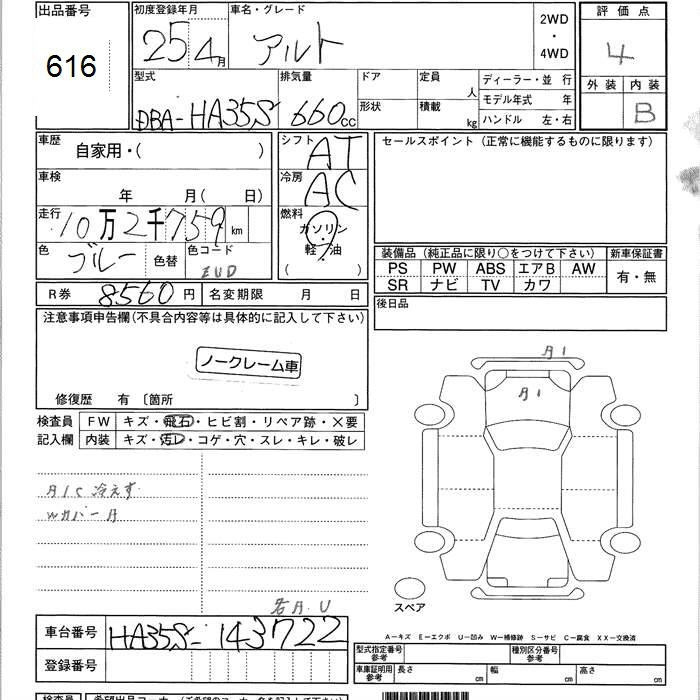 出品番号 初度登録年月 車名・グレード 2WD 評価点
616 25 4月 アルト ・ 4WD 4
型式 排気量 ドア 定員 人 ディーラー・並 行 外装 内装
DBA-HA35S 660cc 形状 積載 kg モデル年式 年 B
ハンドル 左・右
車歴 自家用・( ) シフト AT セールスポイント (正常に機能するものに限ります)
車検 年 月( 日) 冷房 AC
走行 10万2千759 km 燃料 ガソリン・軽油 ( )
色 ブルー 色替 色コード 装備品 (純正品に限り○をつけて下さい) 新車保証書
PS PW ABS エアB AW 有・無
SR ナビ TV カワ
R券 8560円 名変期限 月 日 後日品
注意事項申告欄(不具合内容等は具体的に記入して下さい)
ノークレーム車
A1
A1
修復歴 有 〔箇所 〕
検査員 FW キズ・飛石・ヒビ割・リペア跡・×要
記入欄 内装 キズ・汚レ・コゲ・穴・スレ・キレ・破レ
A/C 冷えず
Wカバー A
各A.U
スペア
A−キズ E−エクボ U−凹み W−補修跡 S−サビ C−腐食 XX−交換済
車台番号 HA35S-143722
型式指定番号 参考 種別区分番号 参考
登録番号 車庫証明用 参考 長さ cm 幅 cm 高さ cm
検査員 希望出品コーナー